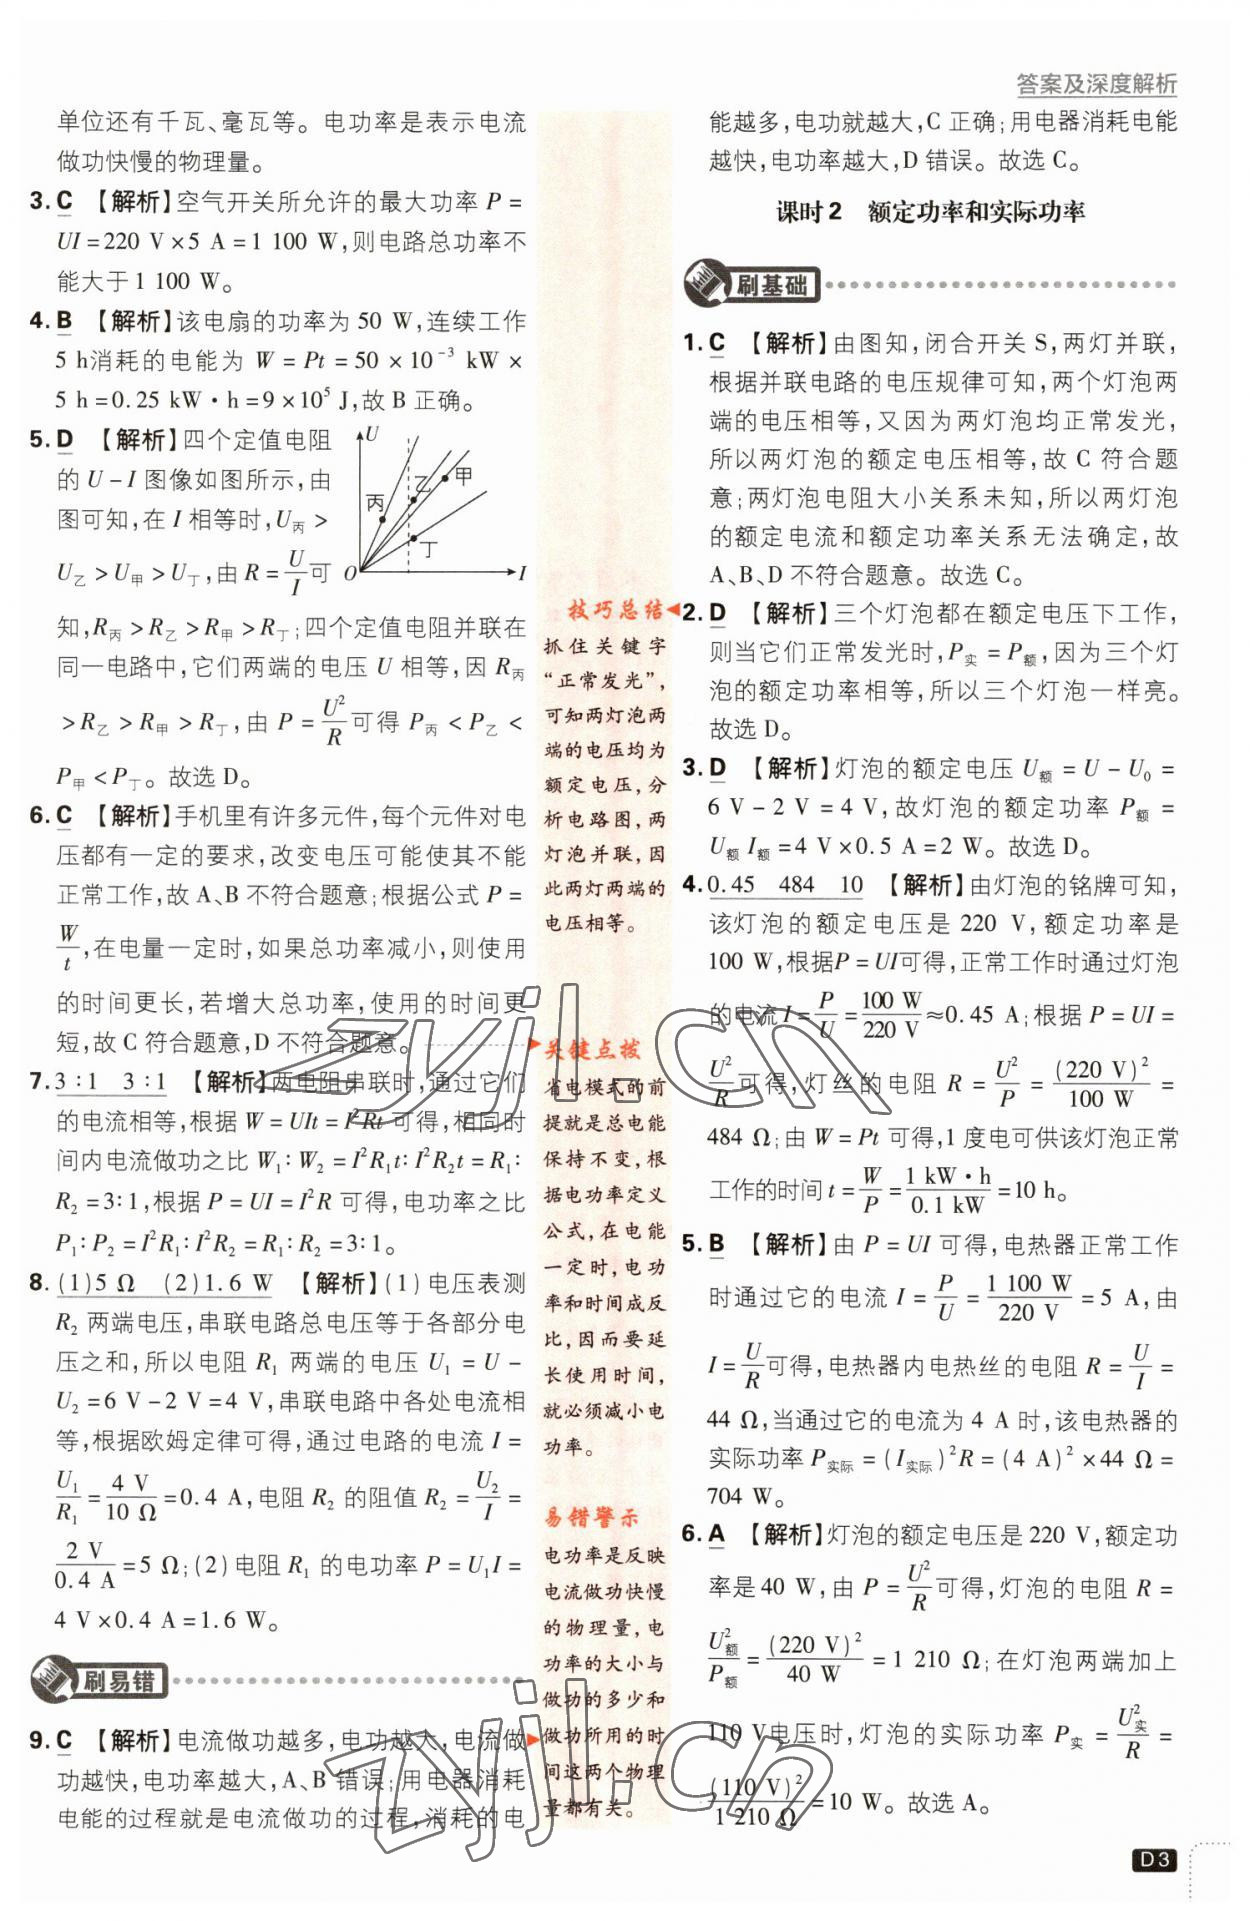 答案及深度解析
单位还有千瓦、毫瓦等。电功率是表示电流
做功快慢的物理量。
3. C 【解析】空气开关所允许的最大功率 P =
UI = 220 V × 5 A = 1 100 W,则电路总功率不
能大于 1 100 W。
4. B 【解析】该电扇的功率为 50 W,连续工作
5 h消耗的电能为 W = Pt = 50 × 10⁻³ kW ×
5 h = 0.25 kW·h = 9 × 10⁵ J,故 B 正确。
5. D 【解析】四个定值电阻
的 U - I 图像如图所示,由
图可知,在 I 相等时,U丙 >
U乙 > U甲 > U丁,由 R = U/I 可
U
丙
乙
甲
丁
O
I
知,R丙 > R乙 > R甲 > R丁;四个定值电阻并联在
同一电路中,它们两端的电压 U 相等,因 R丙
> R乙 > R甲 > R丁,由 P = U²/R 可得 P丙 < P乙 <
P甲 < P丁。故选 D。
6. C 【解析】手机里有许多元件,每个元件对电
压都有一定的要求,改变电压可能使其不能
正常工作,故 A、B 不符合题意;根据公式 P =
W/t,在电量一定时,如果总功率减小,则使用
的时间更长,若增大总功率,使用的时间更
短,故 C 符合题意,D 不符合题意。
7. 3∶1 3∶1 【解析】两电阻串联时,通过它们
的电流相等,根据 W = UIt = I²Rt 可得,相同时
间内电流做功之比 W₁∶W₂ = I²R₁t∶I²R₂t = R₁∶
R₂ = 3∶1,根据 P = UI = I²R 可得,电功率之比
P₁∶P₂ = I²R₁∶I²R₂ = R₁∶R₂ = 3∶1。
8. (1)5 Ω (2)1.6 W 【解析】(1)电压表测
R₂ 两端电压,串联电路总电压等于各部分电
压之和,所以电阻 R₁ 两端的电压 U₁ = U -
U₂ = 6 V - 2 V = 4 V,串联电路中各处电流相
等,根据欧姆定律可得,通过电路的电流 I =
U₁/R₁ = 4 V/10 Ω = 0.4 A,电阻 R₂ 的阻值 R₂ = U₂/I =
2 V/0.4 A = 5 Ω;(2)电阻 R₁ 的电功率 P = U₁I =
4 V × 0.4 A = 1.6 W。
刷易错
9. C 【解析】电流做功越多,电功越大,电流做
功越快,电功率越大,A、B 错误;用电器消耗
电能的过程就是电流做功的过程,消耗的电
技巧总结
抓住关键字
“正常发光”,
可知两灯泡两
端的电压均为
额定电压,分
析电路图,两
灯泡并联,因
此两灯两端的
电压相等。
关键点拨
省电模式的前
提就是总电能
保持不变,根
据电功率定义
公式,在电能
一定时,电功
率和时间成反
比,因而要延
长使用时间,
就必须减小电
功率。
易错警示
电功率是反映
电流做功快慢
的物理量,电
功率的大小与
做功的多少和
做功所用的时
间这两个物理
量都有关。
能越多,电功就越大,C 正确;用电器消耗电能
越快,电功率越大,D 错误。故选 C。
课时2 额定功率和实际功率
刷基础
1. C 【解析】由图知,闭合开关 S,两灯并联,
根据并联电路的电压规律可知,两个灯泡两
端的电压相等,又因为两灯泡均正常发光,
所以两灯泡的额定电压相等,故 C 符合题
意;两灯泡电阻大小关系未知,所以两灯泡
的额定电流和额定功率关系无法确定,故
A、B、D 不符合题意。故选 C。
2. D 【解析】三个灯泡都在额定电压下工作,
则当它们正常发光时,P实 = P额,因为三个灯
泡的额定功率相等,所以三个灯泡一样亮。
故选 D。
3. D 【解析】灯泡的额定电压 U额 = U - U₀ =
6 V - 2 V = 4 V,故灯泡的额定功率 P额 =
U额 I额 = 4 V × 0.5 A = 2 W。故选 D。
4. 0.45 484 10 【解析】由灯泡的铭牌可知,
该灯泡的额定电压是 220 V,额定功率是
100 W,根据P = UI可得,正常工作时通过灯泡
的电流 I = P/U = 100 W/220 V ≈ 0.45 A;根据 P = UI =
U²/R 可得,灯丝的电阻 R = U²/P = (220 V)²/100 W =
484 Ω;由 W = Pt 可得,1 度电可供该灯泡正常
工作的时间 t = W/P = 1 kW·h/0.1 kW = 10 h。
5. B 【解析】由 P = UI 可得,电热器正常工作
时通过它的电流 I = P/U = 1 100 W/220 V = 5 A,由
I = U/R 可得,电热器内电热丝的电阻 R = U/I =
44 Ω,当通过它的电流为 4 A 时,该电热器的
实际功率 P实际 = (I实际)²R = (4 A)² × 44 Ω =
704 W。
6. A 【解析】灯泡的额定电压是 220 V,额定功
率是 40 W,由 P = U²/R 可得,灯泡的电阻 R =
U额²/P额 = (220 V)²/40 W = 1 210 Ω;在灯泡两端加上
110 V电压时,灯泡的实际功率 P实 = U实²/R =
(110 V)²/1 210 Ω = 10 W。故选 A。
D3
zyjl.cn
zyjl.cn